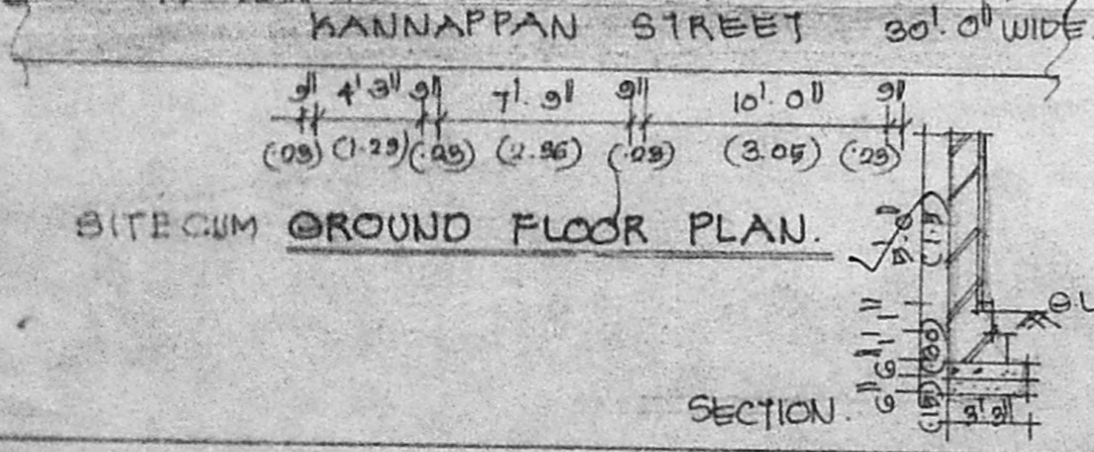 KANNAPPAN STREET 30'.0" WIDE
9" 4'3" 9" 7'.9" 9" 10'.0" 9"
(.09) (1.29) (.09) (2.96) (.09) (3.05) (.23)
SITE CUM GROUND FLOOR PLAN.
G.L
6"
6"
(.15)
3'3"
SECTION.